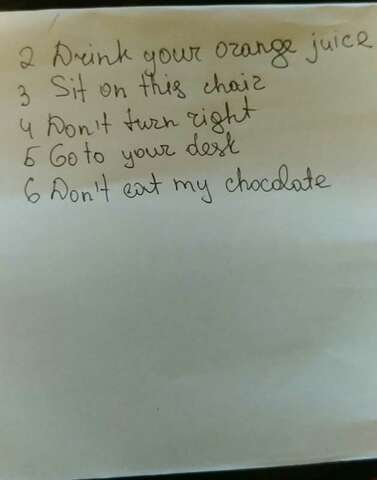 2 Drink your orange juice
3 Sit on this chair
4 Don't turn right
5 Go to your desk
6 Don't eat my chocolate